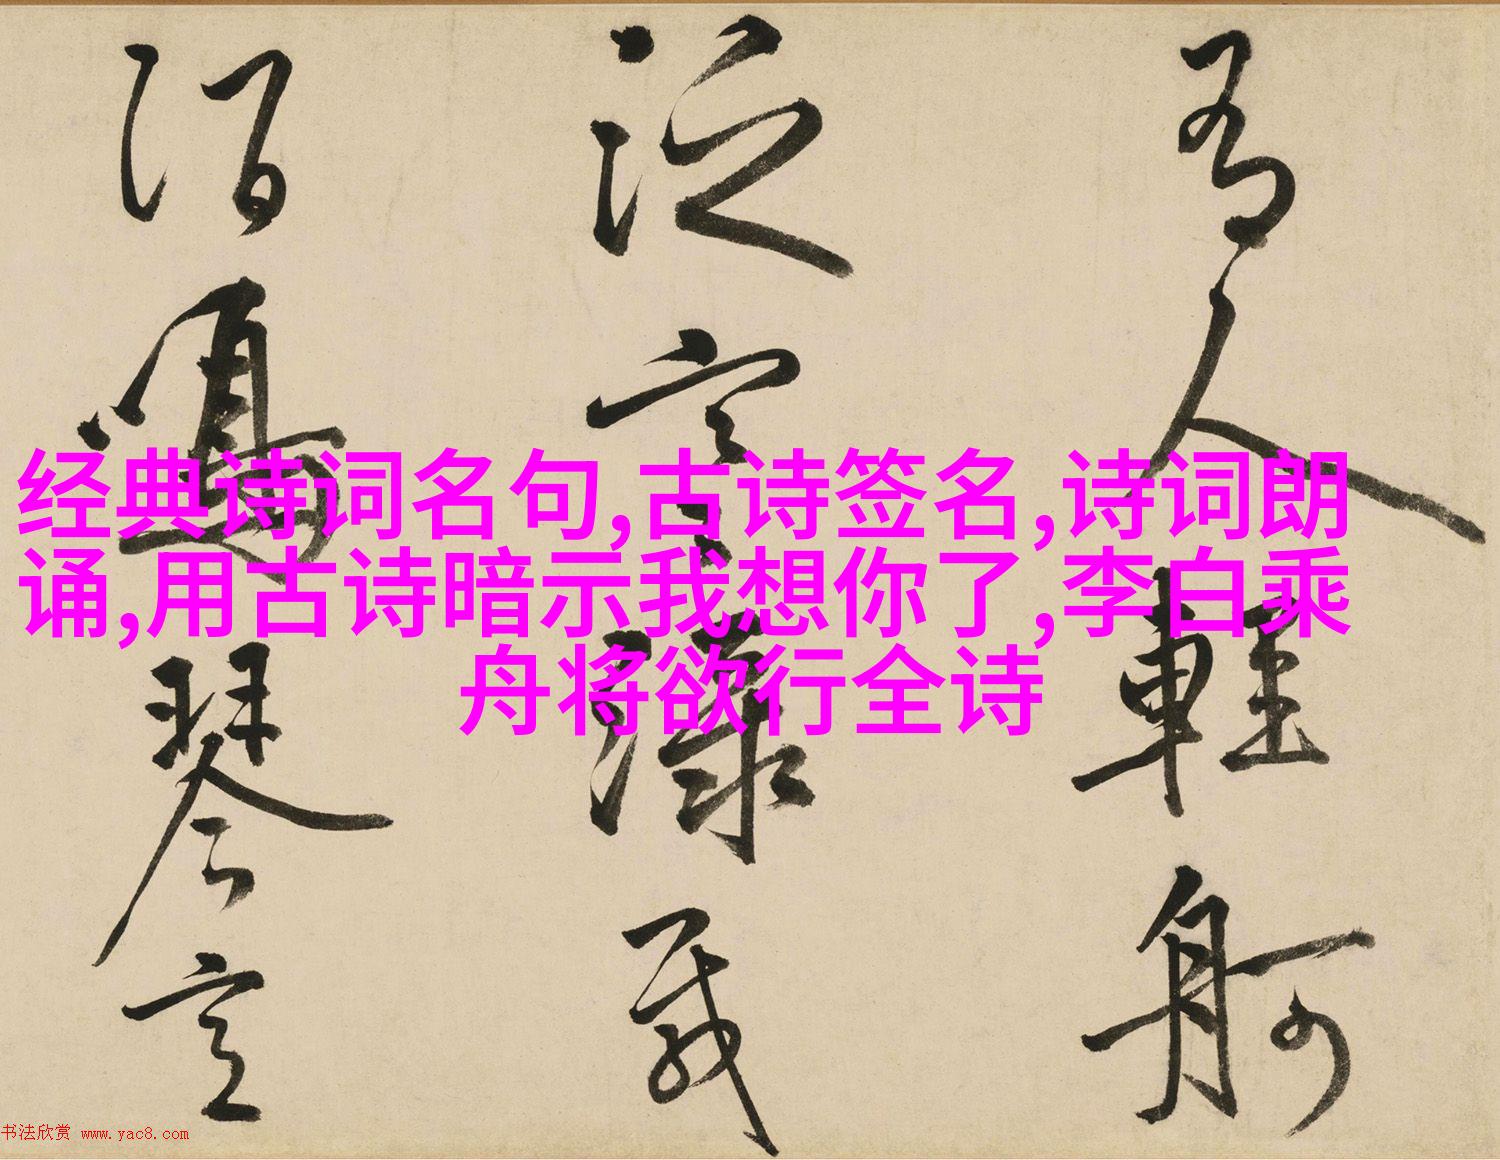 经典诗词名句,古诗签名,诗词朗
诵,用古诗暗示我想你了,李白乘
舟将欲行全诗
人輕舸
泛空濛載
酒鳴琴
书法欣赏 www.yac8.com